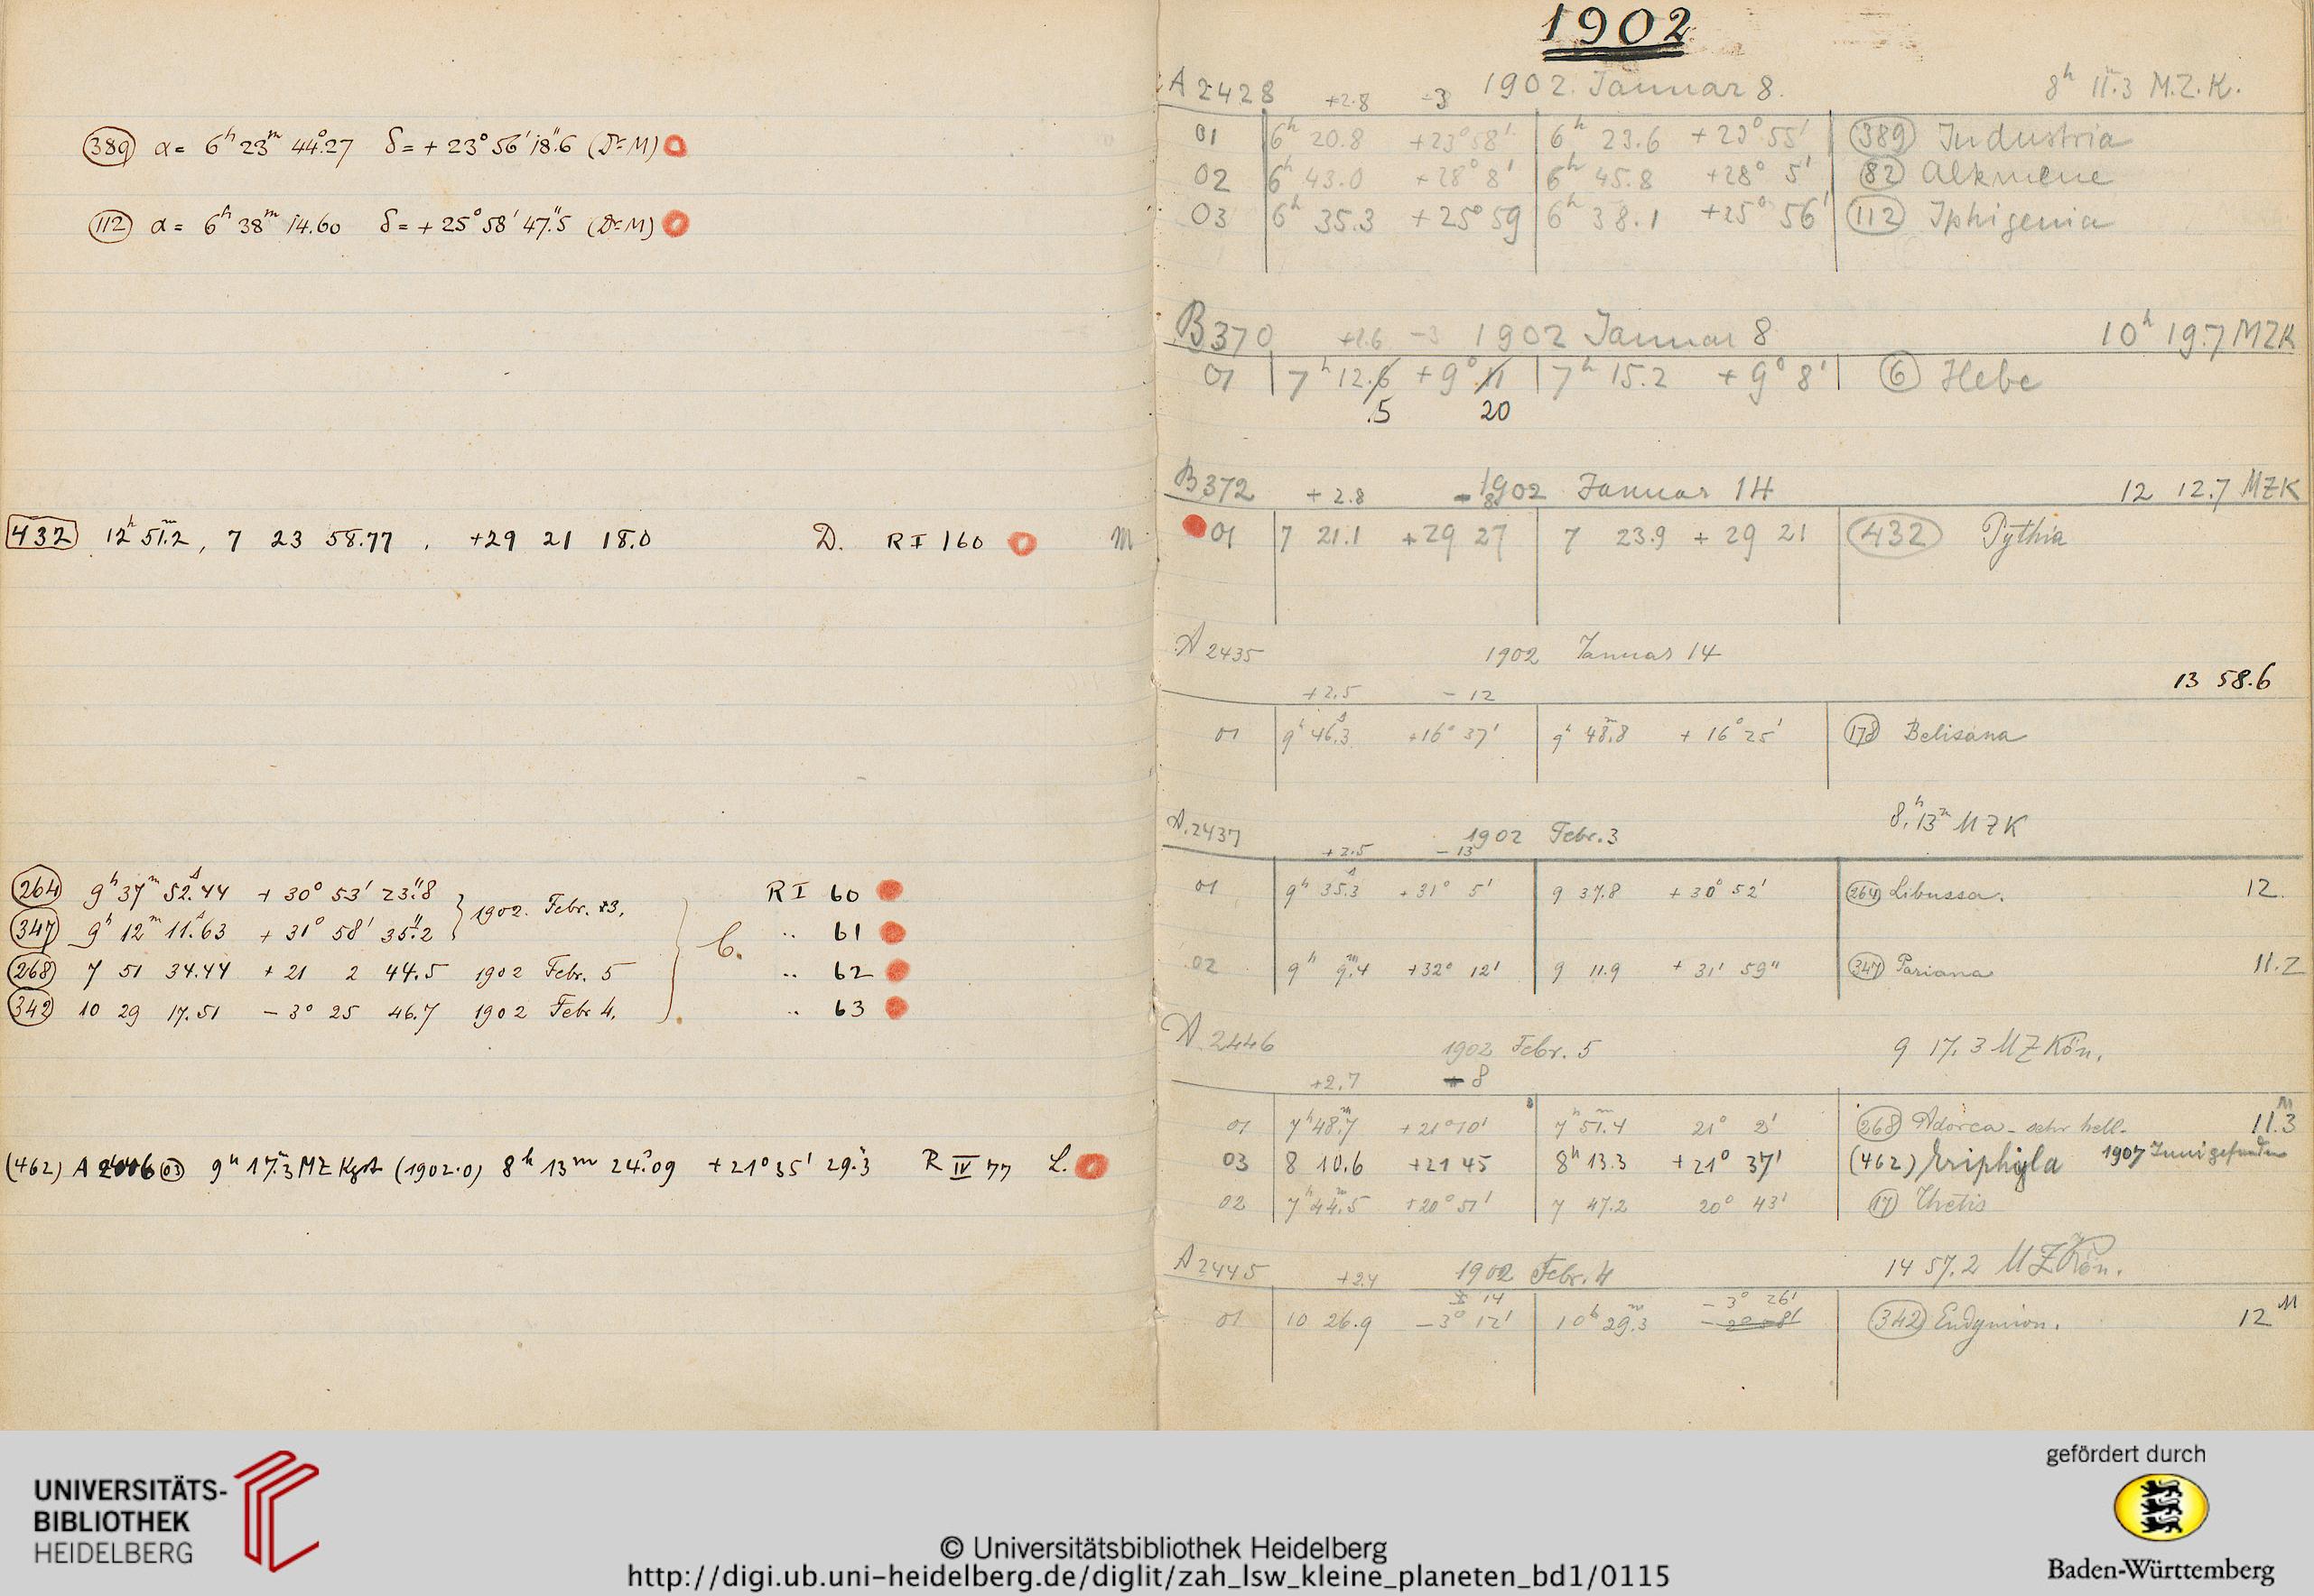 (389) α = 6h 23m 44s.27 δ = + 23° 56' 18".6 (D=M)
(112) α = 6h 38m 14.60 δ = + 25° 58' 47".5 (D=M)
432 12h 51m.2, 7 23 58.77, +29 21 18.0 D. R I 160 M
(264) 9h 37m 52s.44 + 30° 53' 23".8 R I 60
(347) 9h 12m 11s.63 + 31° 58' 35".2 1902. Febr. 3. " 61
(268) 7 51 34.44 + 21 2 44.5 1902 Febr. 5 " 62
(342) 10 29 17.51 − 3° 25 46.7 1902 Febr 4. " 63
(462) A 2446 (03) 9h 17m.3 MZ Kgst (1902.0) 8h 13m 24s.09 + 21° 35' 29".3 R IV 77 L.
1902
A 2428 +2.8 -3 1902. Januar 8. 8h 11m.3 M.Z.K.
01 6h 20.8 +23° 58' 6h 23.6 +23° 55' (389) Industria
02 6h 43.0 +28° 8' 6h 45.8 +28° 5' (82) Alkmene
03 6h 35.3 +25° 59 6h 38.1 +25° 56' (112) Iphigenia
B 370 +2.6 -3 1902 Januar 8 10h 19.7 MZK
01 7h 12.6 +9° 11 7h 15.2 +9° 8' (6) Hebe
.5 20
B 372 +2.8 1902 Januar 14 12 12.7 MZK
01 7 21.1 +29 27 7 23.9 +29 21 (432) Pythia
A 2435 1902 Januar 14
13 58.6
+2.5 − 12
01 9h 46.3 +16° 37' 9h 48m.8 + 16° 25' (178) Belisana
8h. 13m MZK
A.2437 1902 Febr. 3
+2.5 −13
01 9h 35.3 +31° 5' 9 37.8 +30° 52' (264) Libussa. 12.
02 9h 9m.4 +32° 12' 9 11.9 + 31' 59" (347) Pariana 11.2
A 2446 1902 Febr. 5 9 17.3 MZ Kön.
+2.7 - 8
01 7h 48m.7 +21° 10' 7h 51m.4 21° 2' (268) Adorea - sehr hell. 11.3M
03 8 10.6 +21 45 8h 13.3 +21° 37' (462) Eriphyla 1907 Juni gefunden
02 7h 44m.5 +20° 51' 7 47.2 20° 43' (17) Thetis
A 2445 +2.4 1902 Febr. 4 14 57.2 MZ Kön.
14 − 3° 26'
01 10 26.9 −3° 12' 10h 29m.3 (342) Endymion. 12M
UNIVERSITÄTS-
BIBLIOTHEK
HEIDELBERG
© Universitätsbibliothek Heidelberg
http://digi.ub.uni-heidelberg.de/diglit/zah_lsw_kleine_planeten_bd1/0115
gefördert durch
Baden-Württemberg